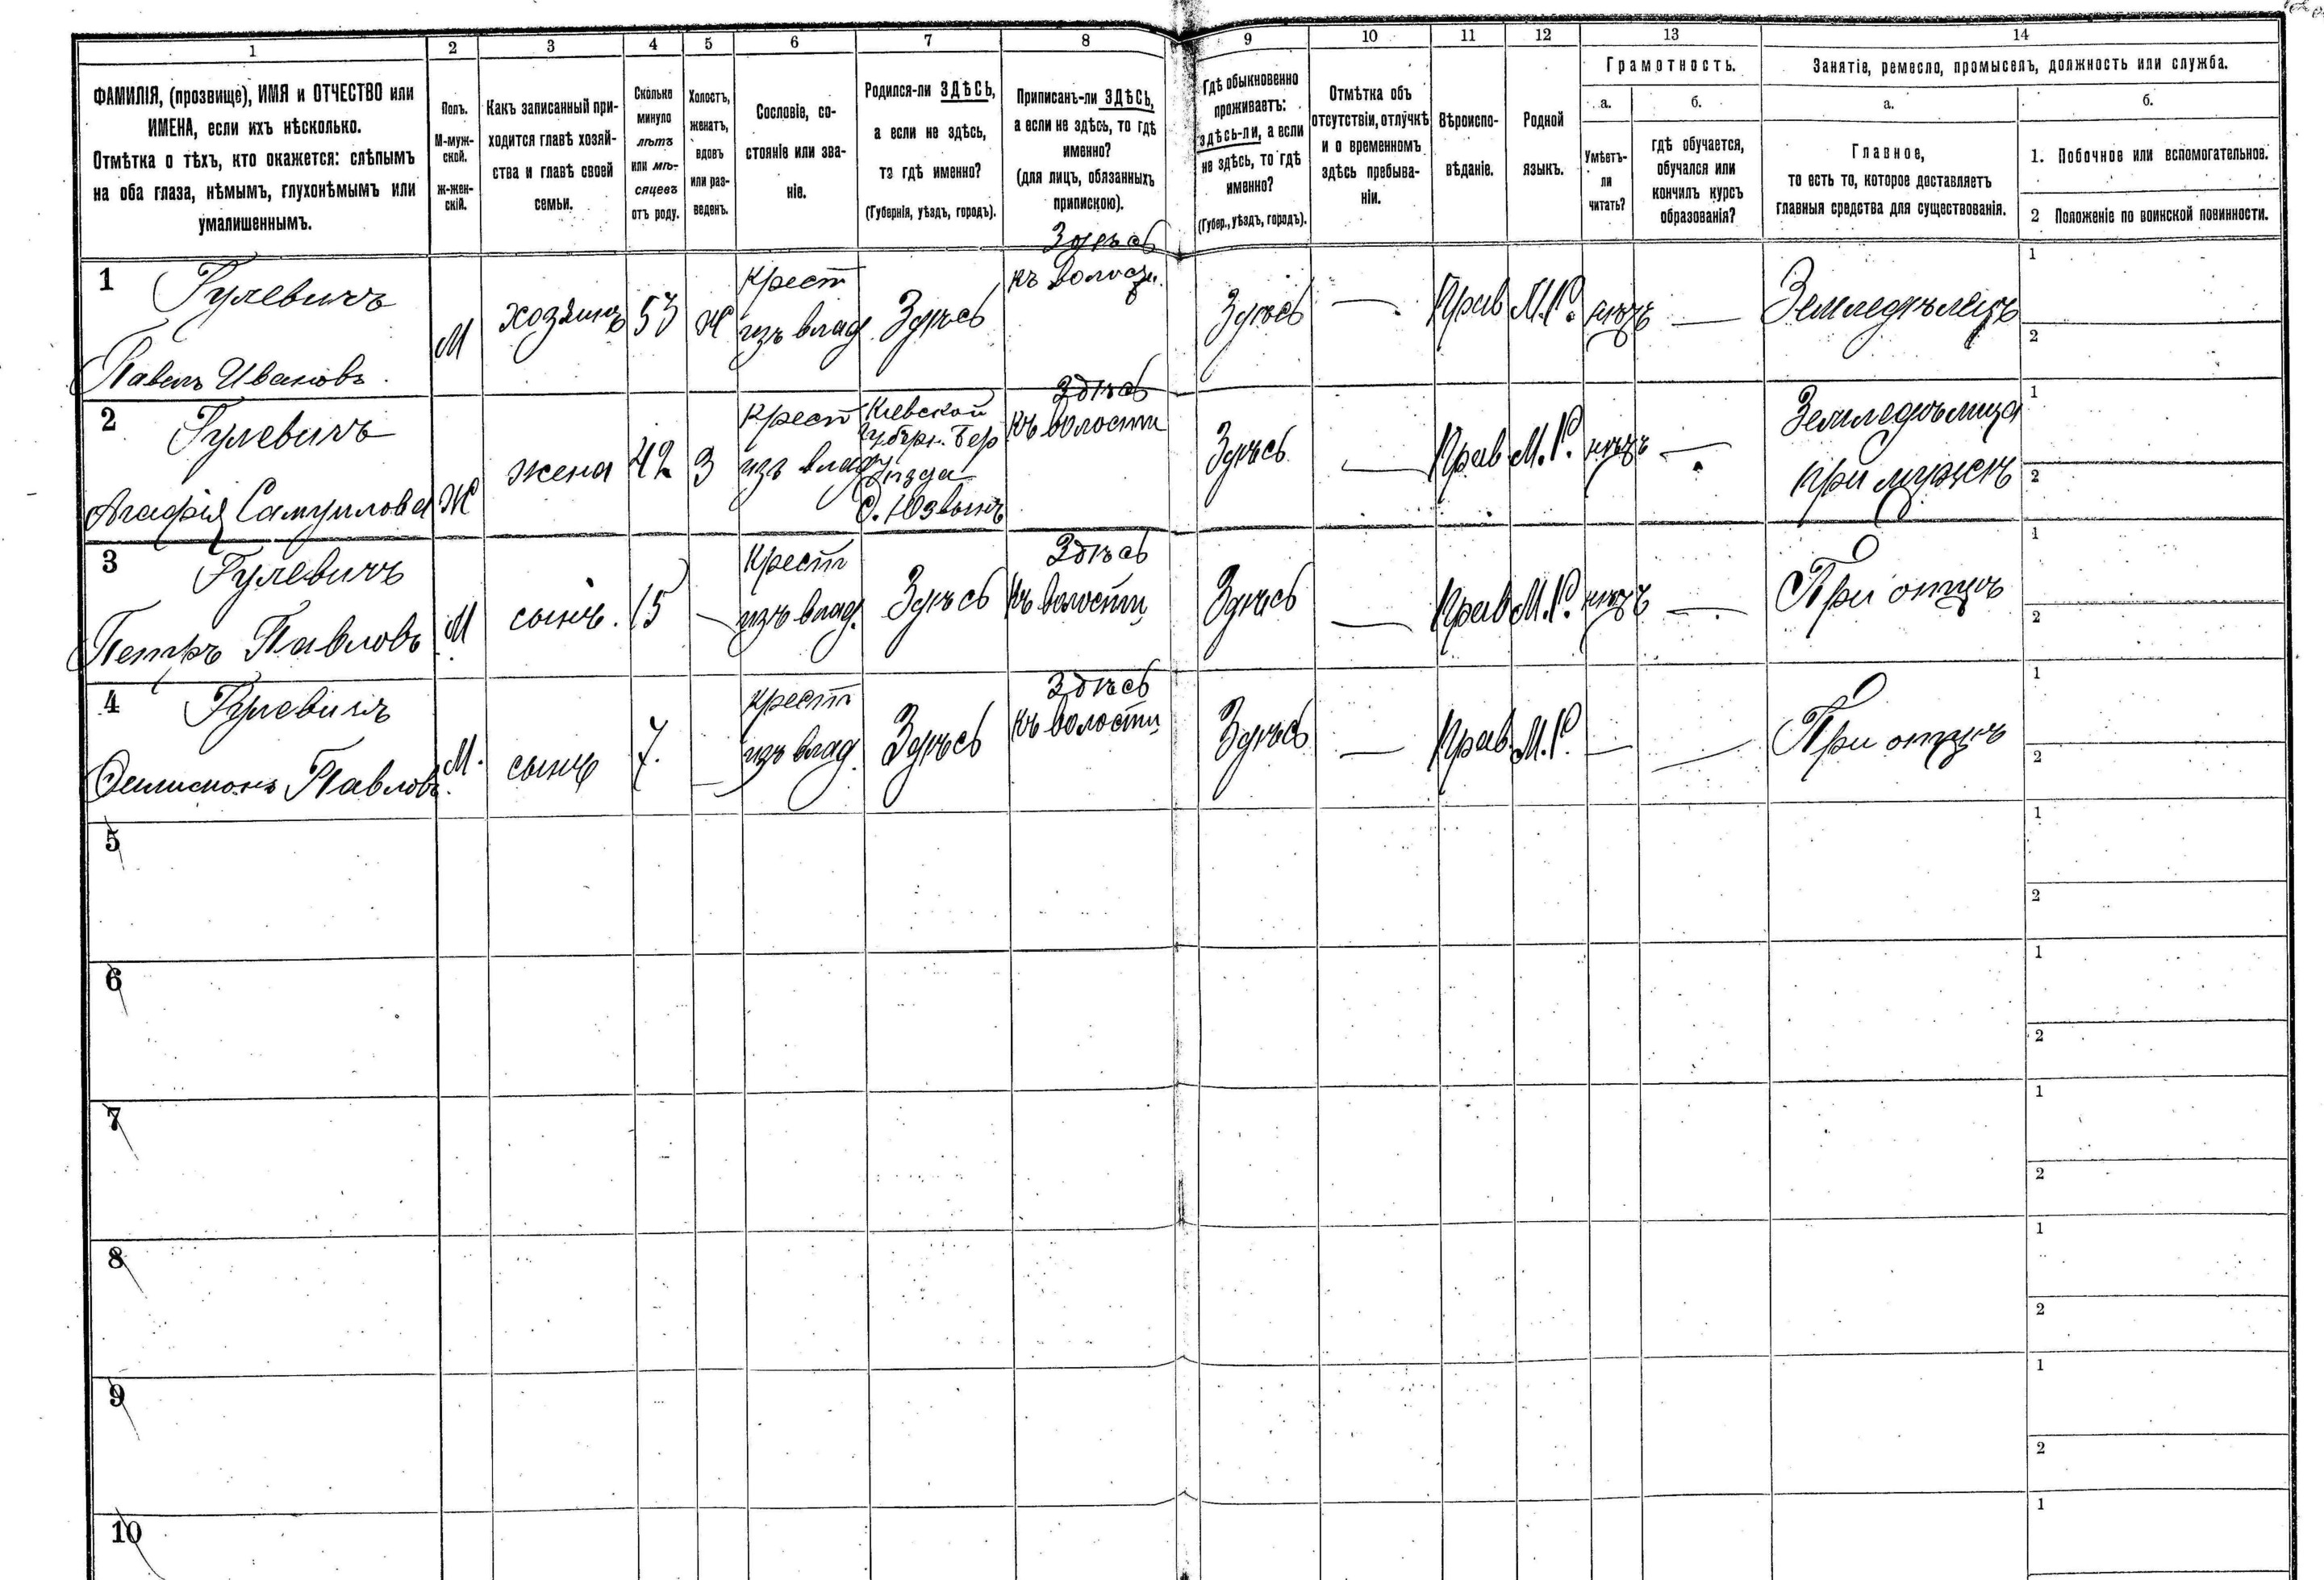 1 2 3 4 5 6 7 8 9 10 11 12 13 14
ФАМИЛІЯ, (прозвище), ИМЯ и ОТЧЕСТВО или
ИМЕНА, если ихъ нѣсколько.
Отмѣтка о тѣхъ, кто окажется: слѣпымъ
на оба глаза, нѣмымъ, глухонѣмымъ или
умалишеннымъ.
Полъ.
М-муж-
ской.
ж-жен-
скій.
Какъ записанный при-
ходится главѣ хозяй-
ства и главѣ своей
семьи.
Сколько
минуло
лѣтъ
или мѣ-
сяцевъ
отъ роду.
Холостъ,
женатъ,
вдовъ
или раз-
веденъ.
Сословіе, со-
стояніе или зва-
ніе.
Родился-ли ЗДѢСЬ,
а если не здѣсь,
то гдѣ именно?
(Губернія, уѣздъ, городъ).
Приписанъ-ли ЗДѢСЬ,
а если не здѣсь, то гдѣ
именно?
(для лицъ, обязанныхъ
припискою).
Гдѣ обыкновенно
проживаетъ:
здѣсь-ли, а если
не здѣсь, то гдѣ
именно?
(Губер., уѣздъ, городъ).
Отмѣтка объ
отсутствіи, отлучкѣ
и о временномъ
здѣсь пребыва-
ніи.
Вѣроиспо-
вѣданіе.
Родной
языкъ.
Грамотность.
а.
Умѣетъ-
ли
читать?
б.
гдѣ обучается,
обучался или
кончилъ курсъ
образованія?
Занятіе, ремесло, промыселъ, должность или служба.
а.
Главное,
то есть то, которое доставляетъ
главныя средства для существованія.
б.
1. Побочное или вспомогательное.
2 Положеніе по воинской повинности.
1
Гулевичъ
Павелъ Ивановъ
М
хозяинъ
53
Ж
Крест
изъ влад
Здѣсь
Здѣсь
къ волости
Здѣсь
—
Прав
М.Р.
нѣтъ
—
Земледѣлецъ
1
2
2
Гулевичъ
Агафія Самуилова
Ж
жена
42
З
Крест
изъ влад
Кіевской
Губерн. Бер
Уѣзда
Здѣсь
къ волости
Здѣсь
—
Прав
М.Р.
нѣтъ
—
Земледѣлица
при мужѣ
1
2
3
Гулевичъ
Петръ Павловъ
М
сынъ.
15
—
Крест
изъ влад.
Здѣсь
Здѣсь
къ волости
Здѣсь
—
Прав
М.Р.
нѣтъ
—
При отцѣ
1
2
4
Гулевичъ
Павловъ
М.
сынъ
7.
—
Крест
изъ влад.
Здѣсь
Здѣсь
къ волости
Здѣсь
—
Прав.
М.Р.
—
—
При отцѣ
1
2
5
1
2
6
1
2
7
1
2
8
1
2
9
1
2
10
1